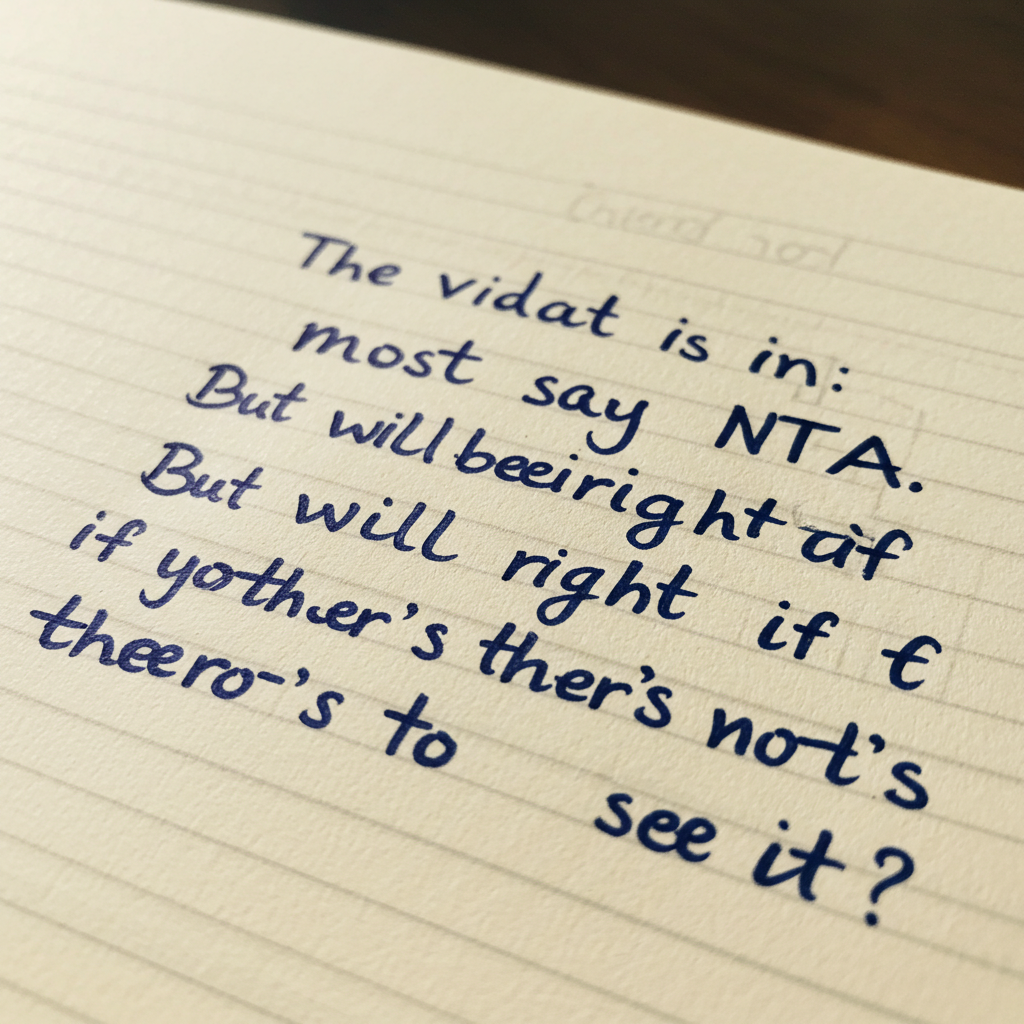 The vidat is in:
most say NTA.
But will beeiright aif
But will right if €
if yother's ther's not's
theero-'s to see it?